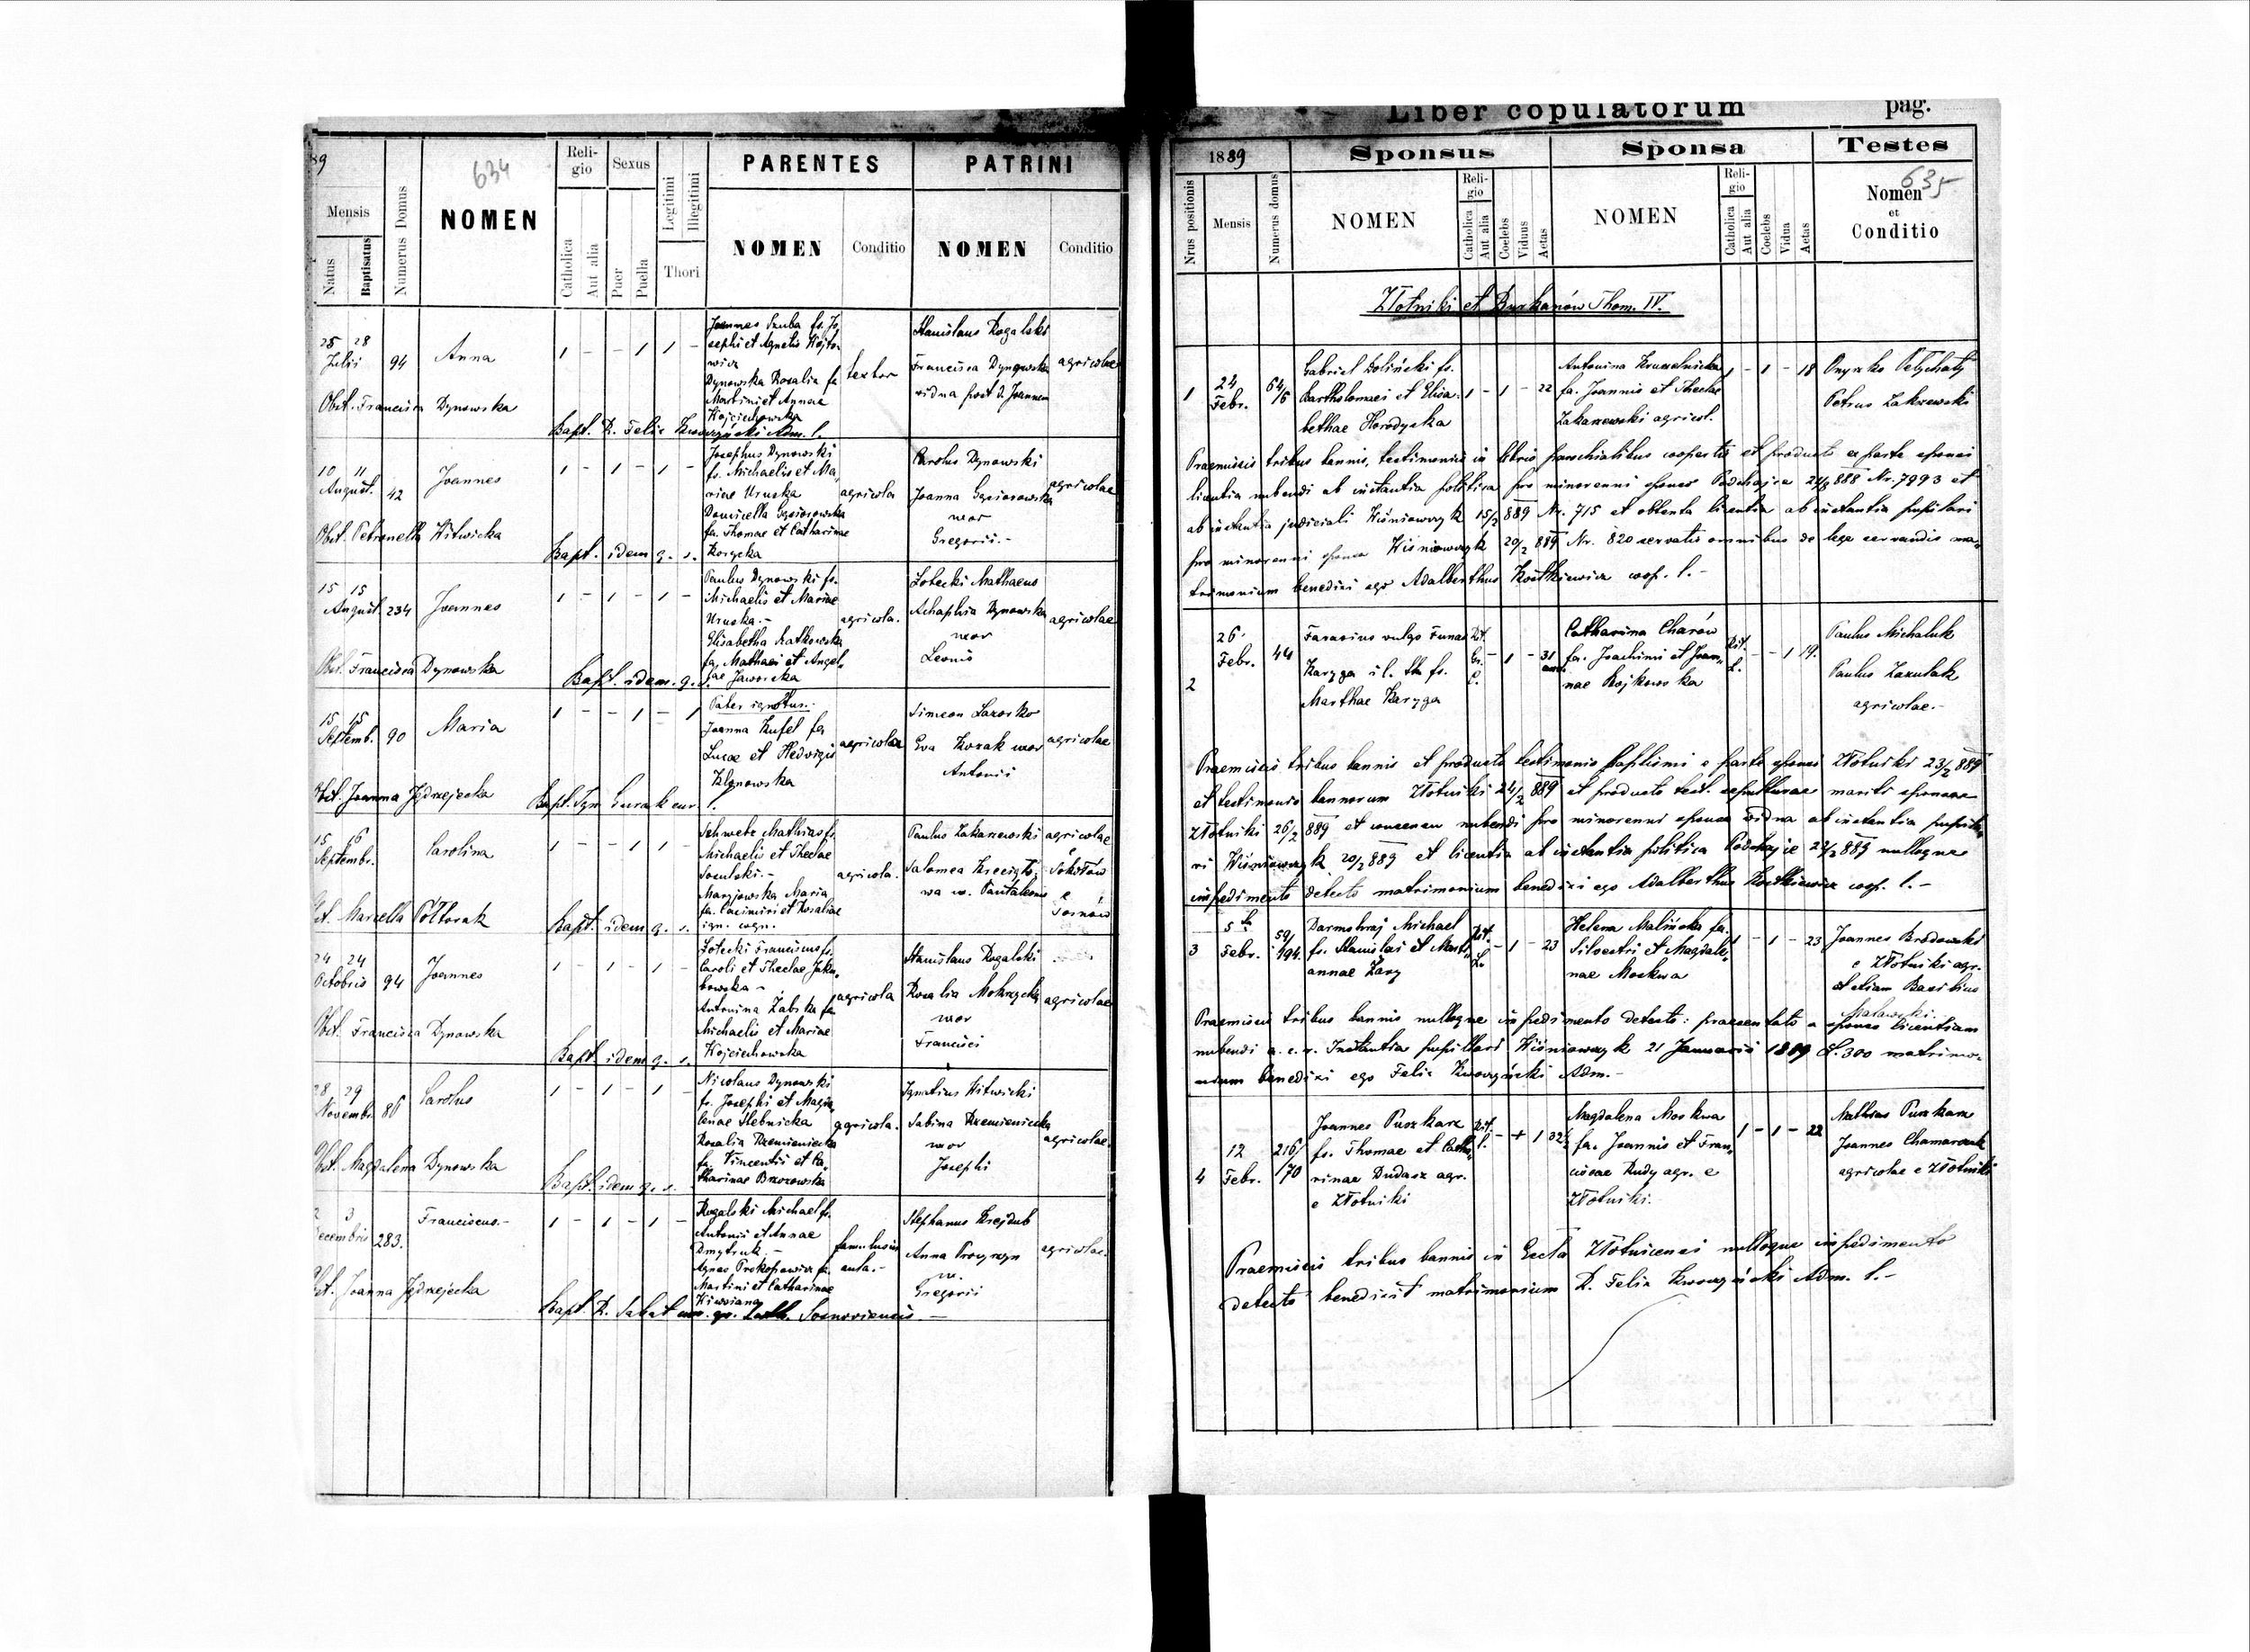 89
634
Mensis
Natus
Baptisatus
Numerus Domus
NOMEN
Reli-
gio
Catholica
Aut alia
Sexus
Puer
Puella
Legitimi
Illegitimi
Thori
PARENTES
NOMEN
Conditio
PATRINI
NOMEN
Conditio
25 28
Julii 94 Anna 1 - - 1 1 -
Joannes Szuba fs. Jo-
sephi et Agnetis Wojto-
wicz
Dynowska Rosalia fa
Martini et Annae
Wojciechowska
textor
Stanislaus Rogalski
Francisca Dynowska
vidua post d. Joannem
agricolae
Obst. Francisca Dynowska
Bapt. R. Felix Adm. l.
10 11
August. 42 Joannes 1 - 1 - 1 -
Josephus Dynowski
fs. Michaelis et Ma-
riae Uruska
Domicella
fa. Thomae et Catharinae
Korycka
agricola
Carolus Dynowski
Joanna
uxor
Gregorii.-
agricolae
Obst. Petronella Witwicka
Bapt. idem q. s.
15 15
August 234 Joannes 1 - 1 - 1 -
Paulus Dynowski fs.
Michaelis et Mariae
Uruska.-
Elisabetha Ratkowska
fa. Mathaei et Angel-
ae Jaworska
agricola.
Łotecki Mathaeus
Dynowska
uxor
Leonis
agricolae
Obst. Francisca Dynowska
Bapt. idem. q. s.
15 15
Septemb. 90 Maria 1 - - 1 - 1
Pater ignotus.
Joanna Kufel fa
Lucae et Hedvigis
Klynowska
agricola
Simeon Lazorko
Eva Kozak uxor
Antonii
agricolae
Obst. Joanna Jędrzejecka
Bapt. Ign. Gurak cur. l.
15 16
Septembr. Carolina 1 - - 1 1 -
Schwetz Mathias fs.
Michaelis et Theclae
Sosulski.-
Maryjowska Maria
fa. Casimiri et Rosaliae
ign. cogn.
agricola.
Paulus Zakrzewski
Salomea
wa u. Pantaleonis
agricolae
Sokołów
e
Sosnów
Obst. Marcella Półtorak
Bapt. idem q. s.
24 24
Octobris 94 Joannes 1 - 1 - 1 -
Łotecki Franciscus fs.
Caroli et Theclae Jaku-
bowska -
Antonina Żabska fa
Michaelis et Mariae
Wojciechowska
agricola
Stanislaus Rogalski
Rosalia Mokrzycka
uxor
Francisci
agricolae
Obst. Francisca Dynowska
Bapt. idem q. s.
28 29
Novembr 86 Carolus 1 - 1 - 1 -
Nicolaus Dynowski
fs. Josephi et Magda-
lenae Stebnicka
Rosalia Rzemieniecka
fa. Vincentii et Ca-
tharinae Brzozowska
agricola.
Ignatius Witwicki
Sabina Rzemieniecka
uxor
Josephi
agricolae.
Obst. Magdalena Dynowska
Bapt. idem q. s.
2 3
Decembris 283. Franciscus.- 1 - 1 - 1 -
Rogalski Michael fs.
Antonii et Annae
Dmytruk.-
Agnes Prokopowicz fa.
Martini et Catharinae
Stephanus Krejdub
Anna
ux.
Gregorii
agricolae.
Obst. Joanna Jędrzejecka
Bapt. R. Sabat
Liber copulatorum pag.
1889
635
Nrus positionis
Mensis
Numerus domus
Sponsus
NOMEN
Reli-
gio
Catholica
Aut alia
Coelebs
Viduus
Aetas
Sponsa
NOMEN
Reli-
gio
Catholica
Aut alia
Coelebs
Vidua
Aetas
Testes
Nomen
et
Conditio
Złotniki et Burkanów Thom. IV.
1 24
Febr. 64/6
Gabriel Doliński fs.
Bartholomaei et Elisa-
bethae Horodyska
1 - 1 - 22
Antonina Kruszelnicka
fa. Joannis et Theclae
Zakrzewski agricol.
1 - 1 - 18
Onyszko Pełychatý
Petrus Zakrzewski
Praemissis tribus bannis, testimoniis in libris parochialibus coopertis et producto ex parte sponsi
licentia nubendi ab instantia politica pro minorenni sponso Podhajce 888 Nr. 7993 et
ab instantia judiciali Wiśniowczyk 15/2 889 Nr. 715 et obtenta licentia ab instantia pupilari
pro minorenni sponsa Wiśniowczyk 20/2 889 Nr. 820 servatis omnibus de lege servandis ma-
trimonium benedixi ego Adalberthus Kostkiewicz coop. l.-
2 26
Febr. 44
Tarasius vulgo Taras
Karyga il. th. fs.
Marthae Karyga
Rit.
Gr.
C.
- 1 - 31
Catharina Charów
fa. Joachimi et Joan-
nae Rojkowska
Rit.
L.
- - 1 19.
Paulus Michaluk
Paulus Zazulak
agricolae.-
Praemissis tribus bannis et producto testimonio baptismi e parte sponsi Złotniki 23/2 889
et testimonio bannorum Złotniki 24/2 889 et producto test. sepulturae mariti sponsae
Złotniki 26/2 889 et consensu nubendi pro minorenni sponsa vidua ab instantia pupila-
ri Wiśniowczyk 20/2 889 et licentia ab instantia politica Podhajce 22/2 889 nulloque
impedimento detecto matrimonium benedixi ego Adalberthus Kostkiewicz coop. l.-
3 5ta
Febr. 59/194.
Darmohraj Michael
fs. Stanislai et Mari-
annae Zary
Rit.
L.
- 1 - 23
Helena Malińska fa.
Silvestri et Magdale-
nae Moskwa
1 - 1 - 23
Joannes Brodowski
e Złotniki agr.
et etiam Basilius
Małowski.
Praemissis tribus bannis nulloque impedimento detecto: praesentato a sponso licentiam
nubendi a. c. r. Instantia pupillari Wiśniowczyk 21 Januarii 1889 L. 300 matrimo-
nium benedixi ego Felix Adm.-
4 12
Febr. 216/170
Joannes Puszkarz
fs. Thomae et Catha-
rinae Dudasz agr.
e Złotniki
Rit.
l.
Magdalena Moskwa
fa. Joannis et Fran-
ciscae Rudy agr. e
Złotniki.
1 - 1 - 22
Mathias Puszkarz
Joannes
agricolae e Złotniki
Praemissis tribus bannis in Eccla Złotnicensi nulloque impedimento
detecto benedixit matrimonium R. Felix Adm. l.-